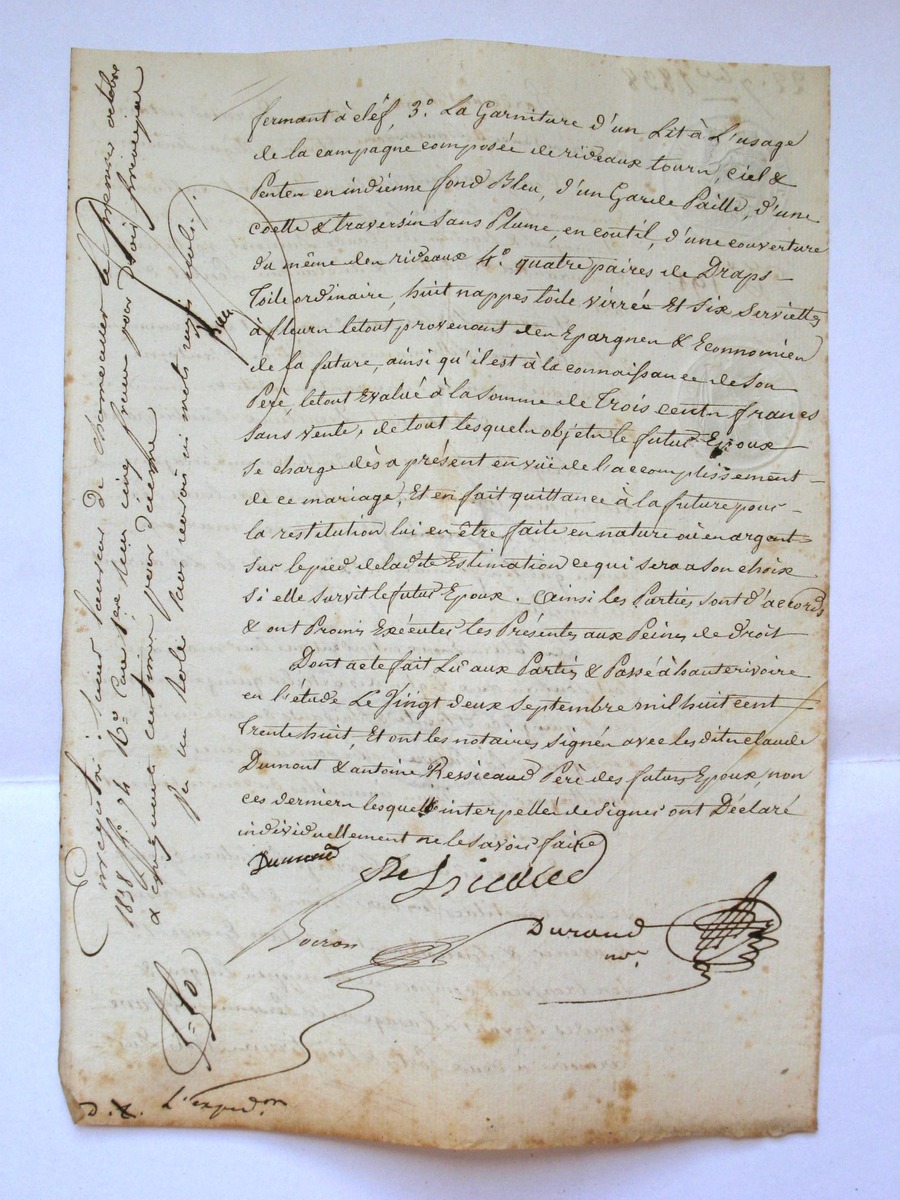 fermant à cléf, 3.º La Garniture d'un Lit à L'usage
de la campagne composée de rideaux tourn, ciel &
Penten en indienne fond Bleu, d'un Garde Paille, d'une
coette & traversin sans Plume, en coutil, d'une couverture
du même den rideaux 4.º quatre paires de Draps
Toile ordinaire, huit nappes toile virrée Et Six Serviettes
à fleurn le tout provenant den Epargnen & Econnomien
de la future, ainsi qu'il est à la connaissance de Son
Père, le tout Evalué à la Somme de Trois centn francs
Sans vente, de tout lesqueln objetn le futur Epoux
Se charge dès a présent en vüe de l'accomplissement
de ce mariage, Et en fait quittance à la future pour
la restitution lui en être faite en nature où en argent
Sur le pied de ladite Estimation ce qui sera a son choix
Si elle survit le futur Epoux. Ainsi les Parties sont d'accords
& ont Promis Exécuter les Présentes aux Peines de droit
Dont acte fait Lu aux Partis & Passé à hauterivoire
en l'étude Le Vingt deux Septembre mil huit cent
Trente huit, Et ont les notaires signén avec les ditn claude
Dumont & antoine Ressicaud Père des futurs Epoux, non
ces derniern lesquells interpellén de signer ont Déclaré
individuellement ne le savoir faire
Dumond
Boiron
Durand
nore
Enregistré à Saint Laurent de chamousset le premier octobre
1838 fo 94 Ro Case 1ere reçu cinq francs pour droit principal
& cinquante centimes pour décime
5=50
D. X. L'expedon